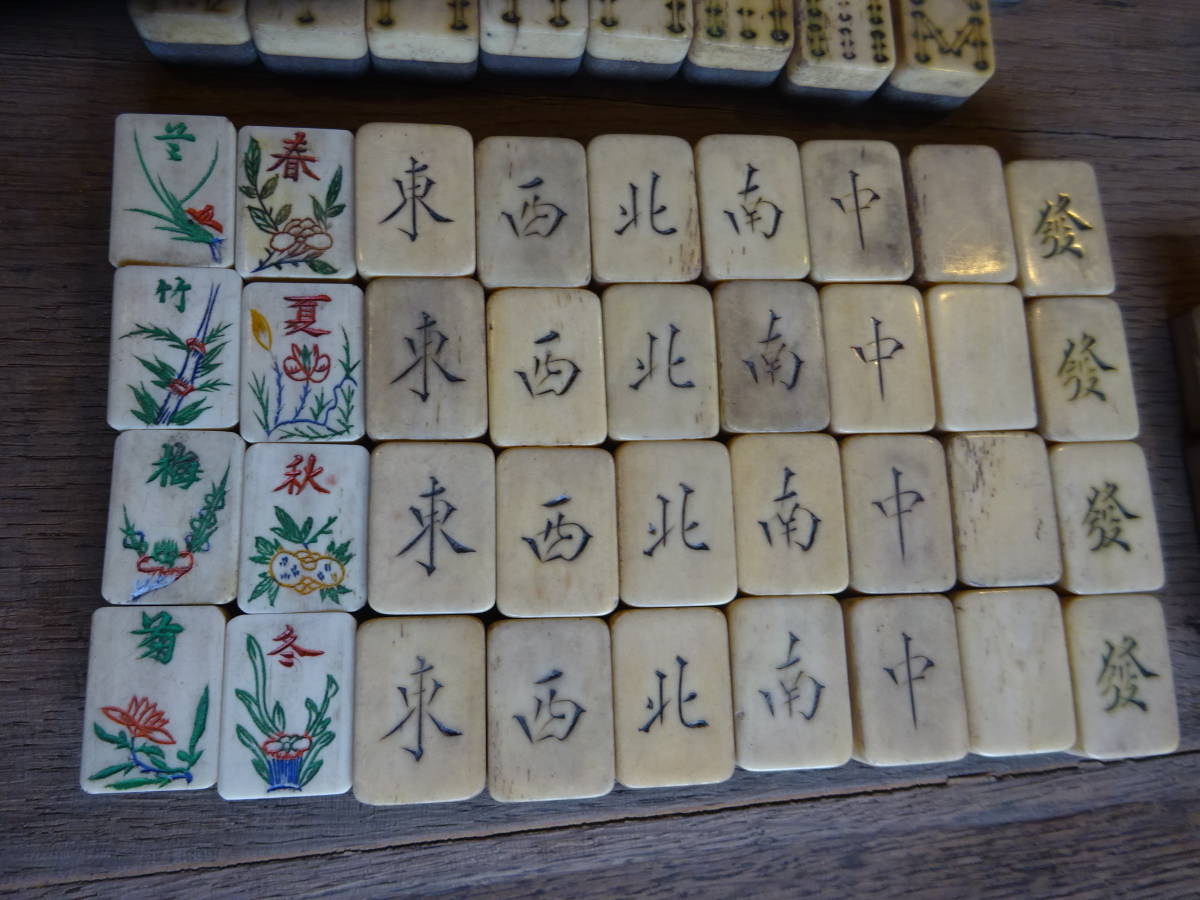 兰 春 東 西 北 南 中 發
竹 夏 東 西 北 南 中 發
梅 秋 東 西 北 南 中 發
菊 冬 東 西 北 南 中 發